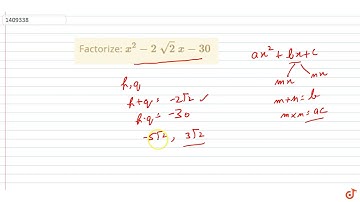 1409338
Factorize: x² − 2 √2 x − 30
ax² + bx + c
mx nx
m+n = b
m×n = ac
p, q
p+q = -2√2 ✓
p·q = -30
-5√2, 3√2